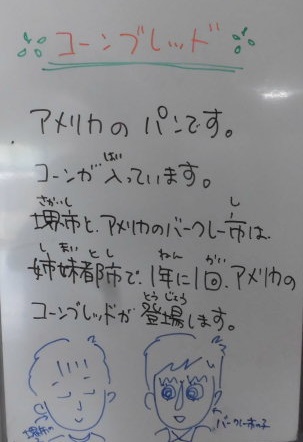 コーンブレッド
アメリカのパンです。
コーンが入っています。
堺市と、アメリカのバークレー市は
姉妹都市で、1年に1回、アメリカの
コーンブレッドが登場します。
堺市の
バークレー市の子